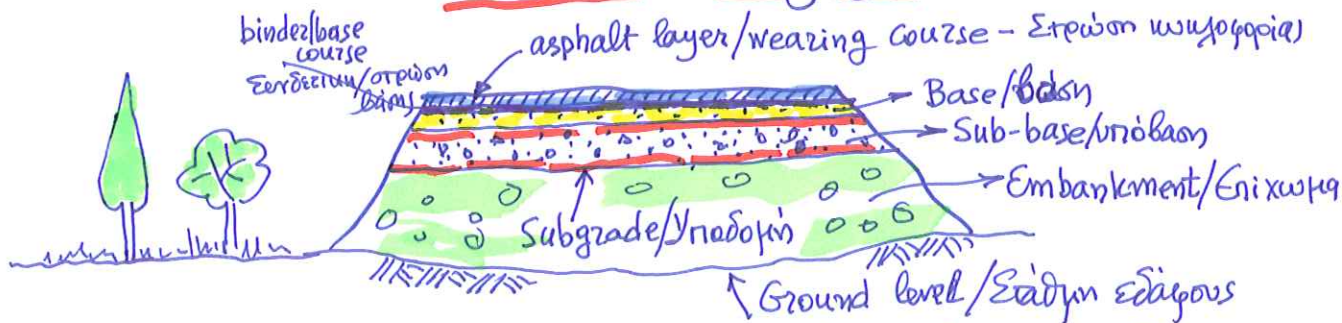 binder/base
course
Συνδετική/στρώση
βάσης
asphalt layer/wearing course - Στρώση κυκλοφορίας
Base/βάση
Sub-base/υπόβαση
Embankment/Επίχωμα
Subgrade/Υποδομή
Ground level/Στάθμη εδάφους